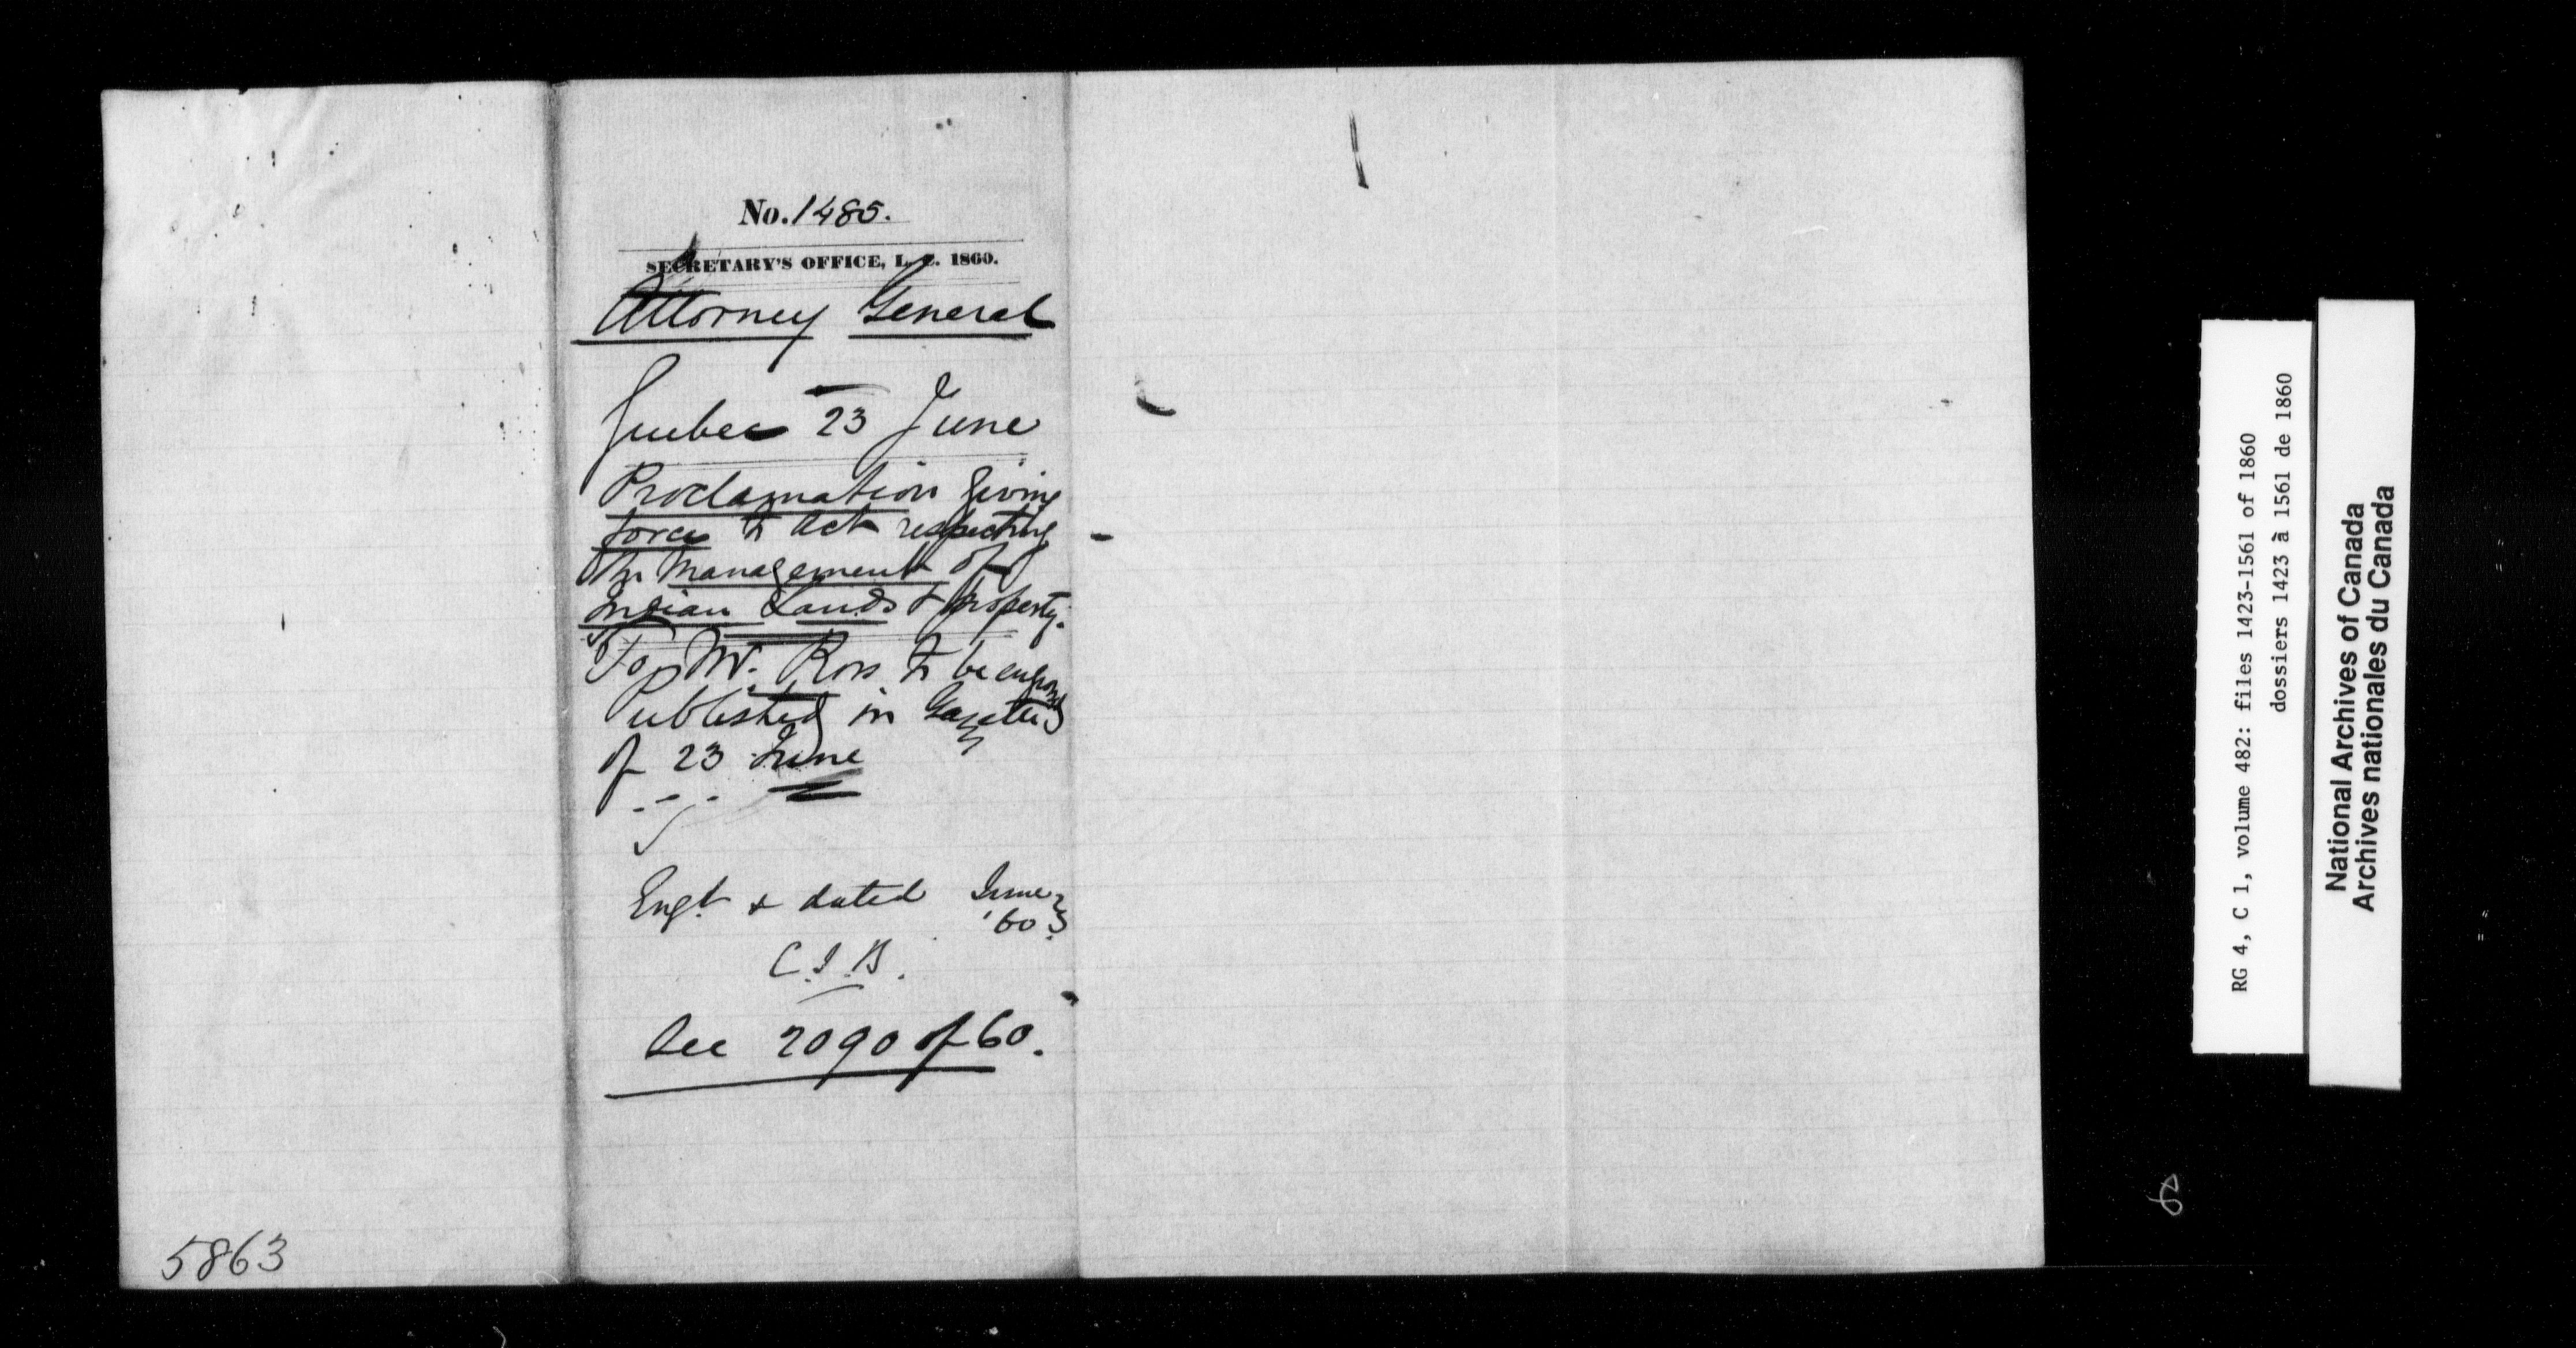 No. 1485.
SECRETARY'S OFFICE, L. C. 1860.
Attorney General
Quebec 23 June
Proclamation giving
force to Act respecting
the Management of
Indian Lands & property.
To Mr. Ross to be engrossed
Published in Gazette
of 23 June
Engd. & dated June 23
'60
C.I.B.
See 2090 of 60.
5863
RG 4, C 1, volume 482: files 1423-1561 of 1860
dossiers 1423 à 1561 de 1860
National Archives of Canada
Archives nationales du Canada